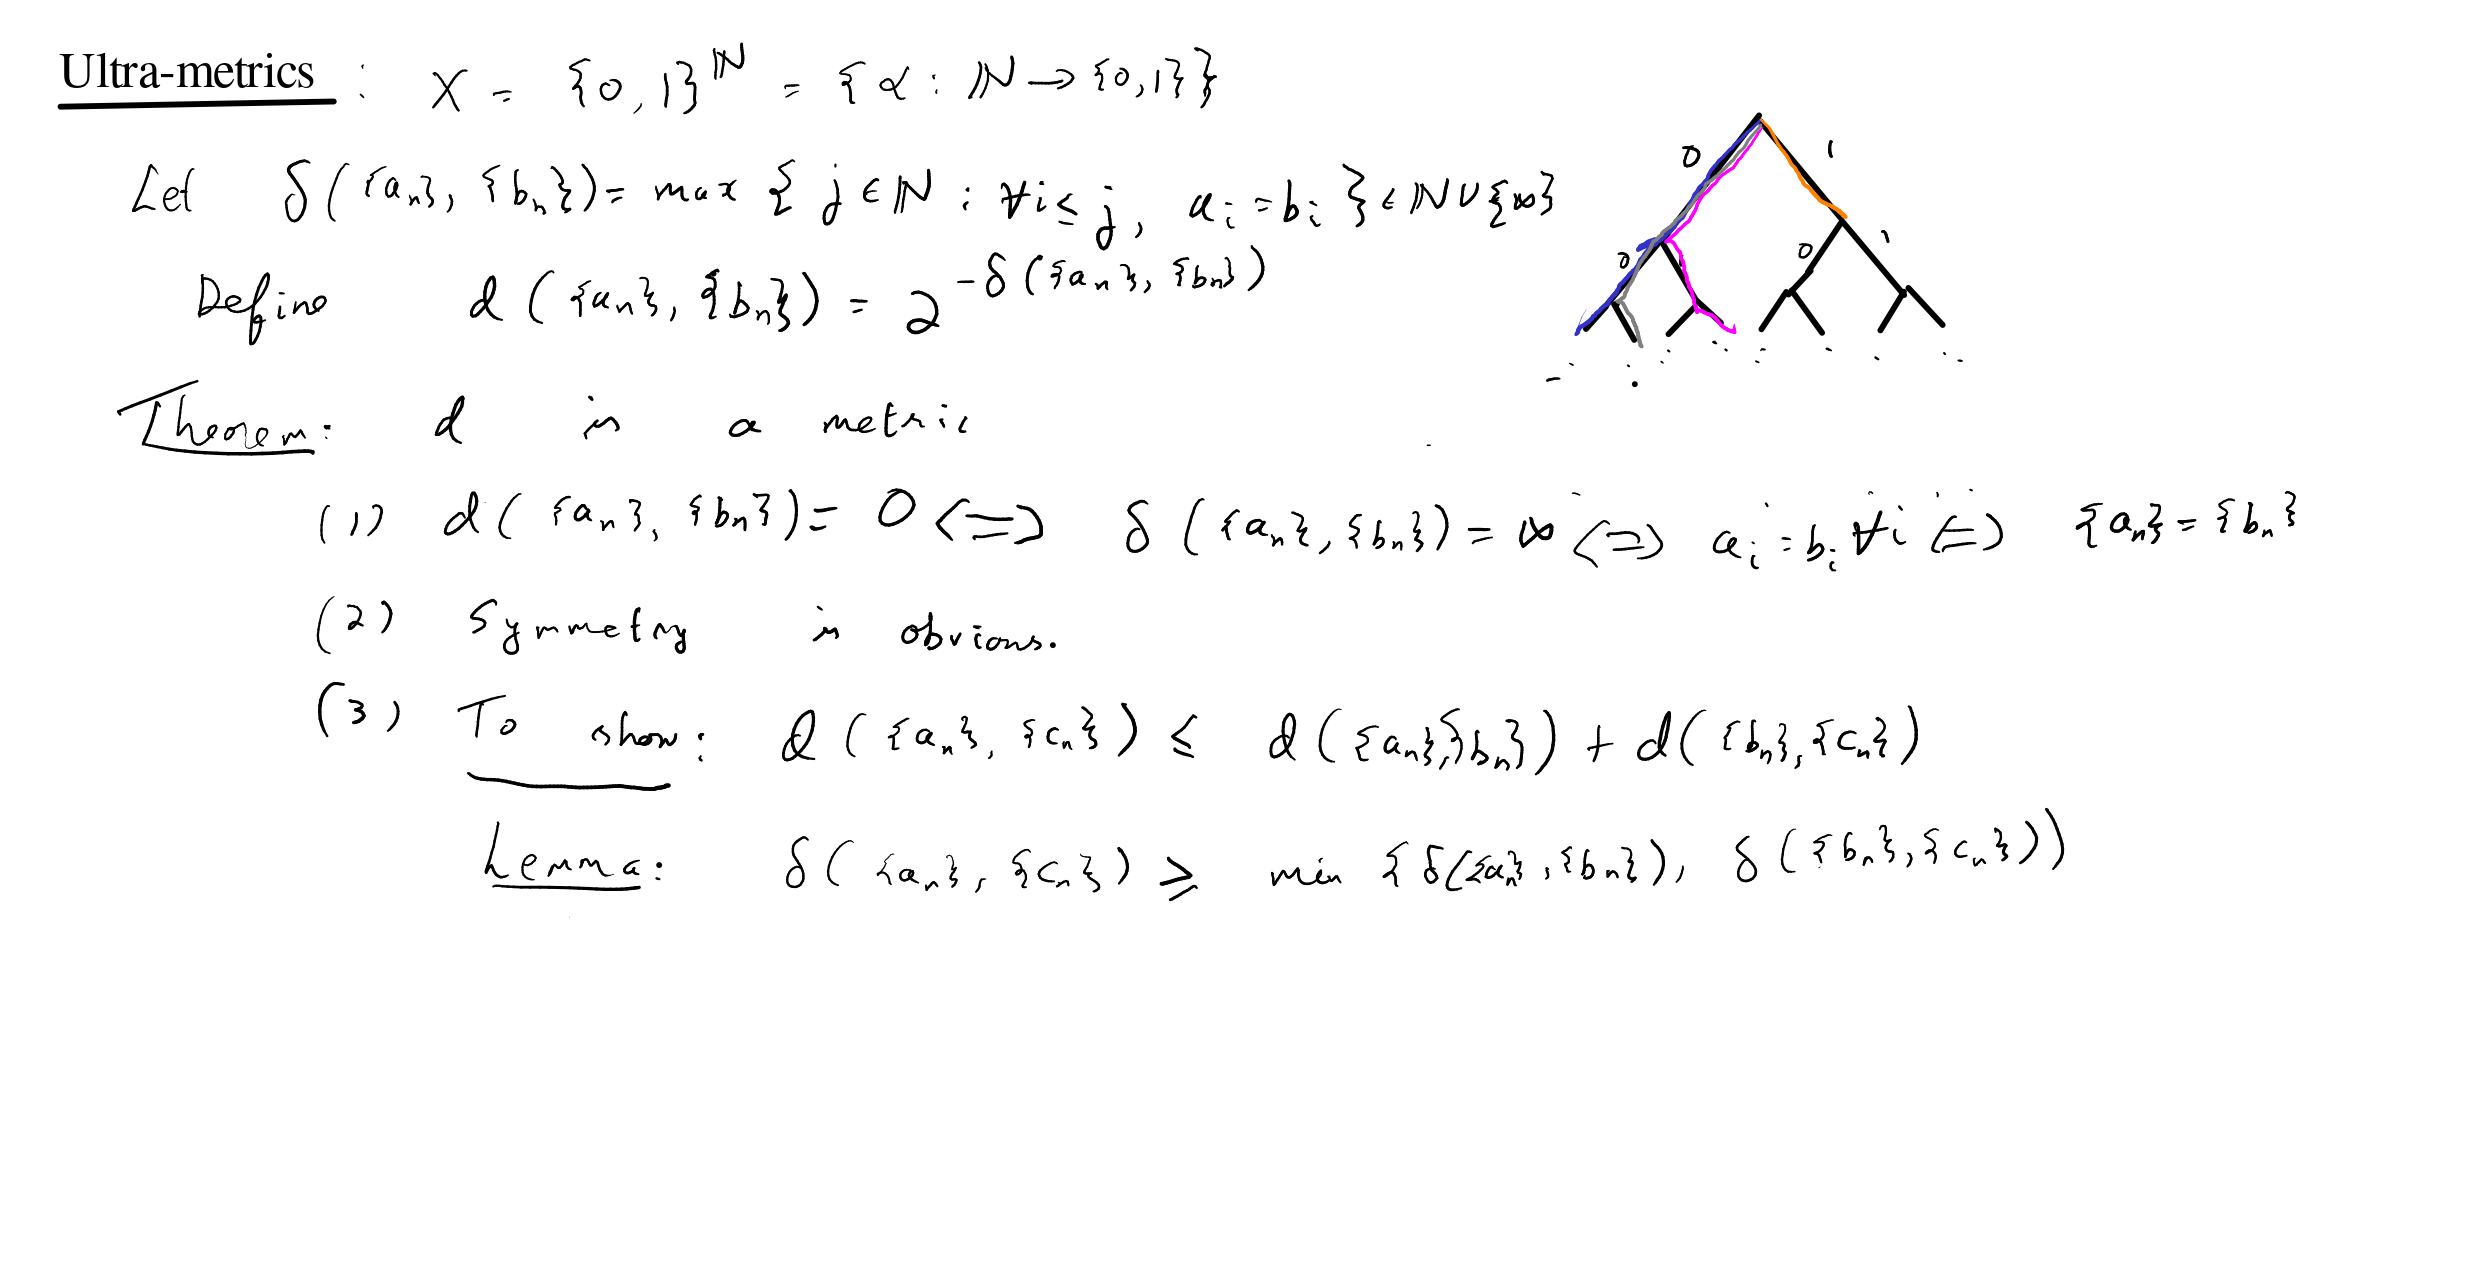 Ultra-metrics : X = {0,1}^ℕ = {α : ℕ → {0,1}}
Let δ({aₙ}, {bₙ}) = max { j ∈ ℕ : ∀ i ≤ j, aᵢ = bᵢ } ∈ ℕ ∪ {∞}
Define d({aₙ}, {bₙ}) = 2^{-δ({aₙ}, {bₙ})}
0 1
0 0 1
Theorem: d is a metric
(1) d({aₙ}, {bₙ}) = 0 <=> δ({aₙ}, {bₙ}) = ∞ <=> aᵢ = bᵢ ∀ i <=> {aₙ} = {bₙ}
(2) Symmetry is obvious.
(3) To show: d({aₙ}, {cₙ}) ≤ d({aₙ}, {bₙ}) + d({bₙ}, {cₙ})
Lemma: δ({aₙ}, {cₙ}) ≥ min {δ({aₙ}, {bₙ}), δ({bₙ}, {cₙ}))